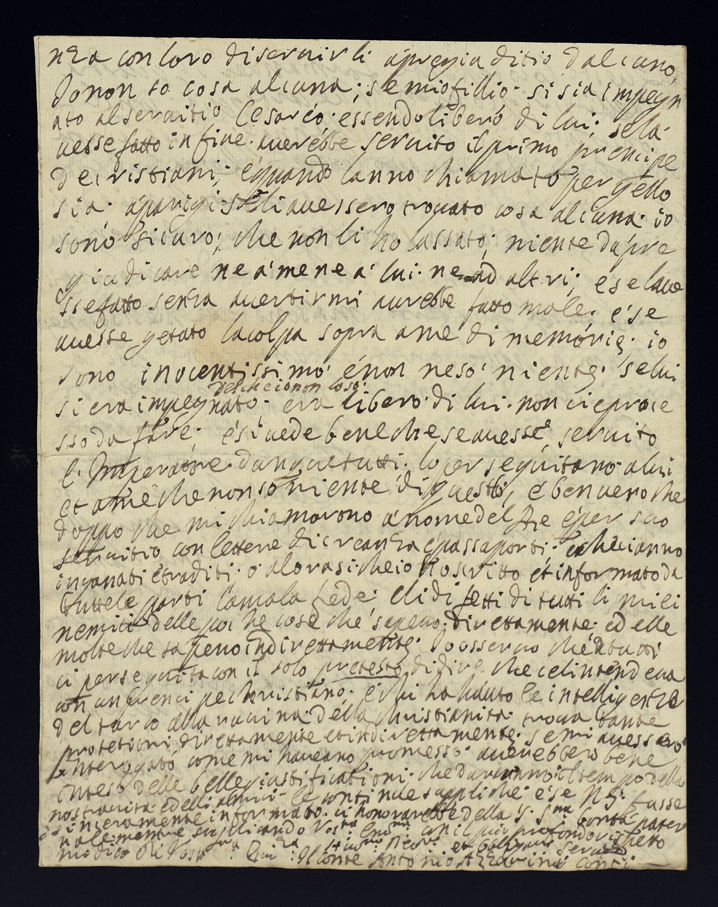 nza con loro di servirli a pregiaditio d alcuno,
Io non so cosa alcuna; se mio fillio si sia impegn
ato al servitio Cesareo essendo libero di lui; se la
uesse fatto in fine auerebbe seruito il primo prencipe
de cristiani. é quando l anno chiamato per
sia a parigi se li auessero trouato cosa alcuna io
sono sicuro; che non li ho lassato niente da pre
giudicare ne a me ne a lui ne ad altri; e se laue
sse fatto senza auertirmi aurebbe fatto male. é se
auesse getato la colpa sopra a me di memórie. io
sono inocentissimo é non ne so niente. se lui
del che io non loso
si era impegnato. era libero di lui. non ci é proce
sso da fare. é si uede bene che se auesse seruito
l Imperatore. dunque tutti lo perseguitano a lui
et a me che non so niente di questo, é ben uero che
doppo che mi chiamorono a nome del Re é per suo
seruitio con lettere di creanza é passaporti. e che ci anno
inganati é traditi. o alora si che io ho scritto et informato da
tutte le parti la mala fede. e li difetti di tutti li miei
nemici delle poche cose che sapeuo direttamente ed elle
molte che sapeuo indirettamente. Io osseruo che a tutti
ci perseguita con il solo pretesto di dire che ce l intendeua
con un prencipe christiano. e chi ha hauto le intelligenze
del turco alla rouina della christianita troua tante
protetioni direttamente et indirettamente. se mi auessero
Interogato come mi haueano promesso auerebbero bene
inteso delle belle giustificationi. che daranno il tempo della
nostra uita ed elli amici le continue supliche é se N. S. fusse
sinceramente informato. ci honorarebbe della S. Sma bonta pater
nalemente suplicando Vostra con il piu profondo rispetto
Conte Antonio